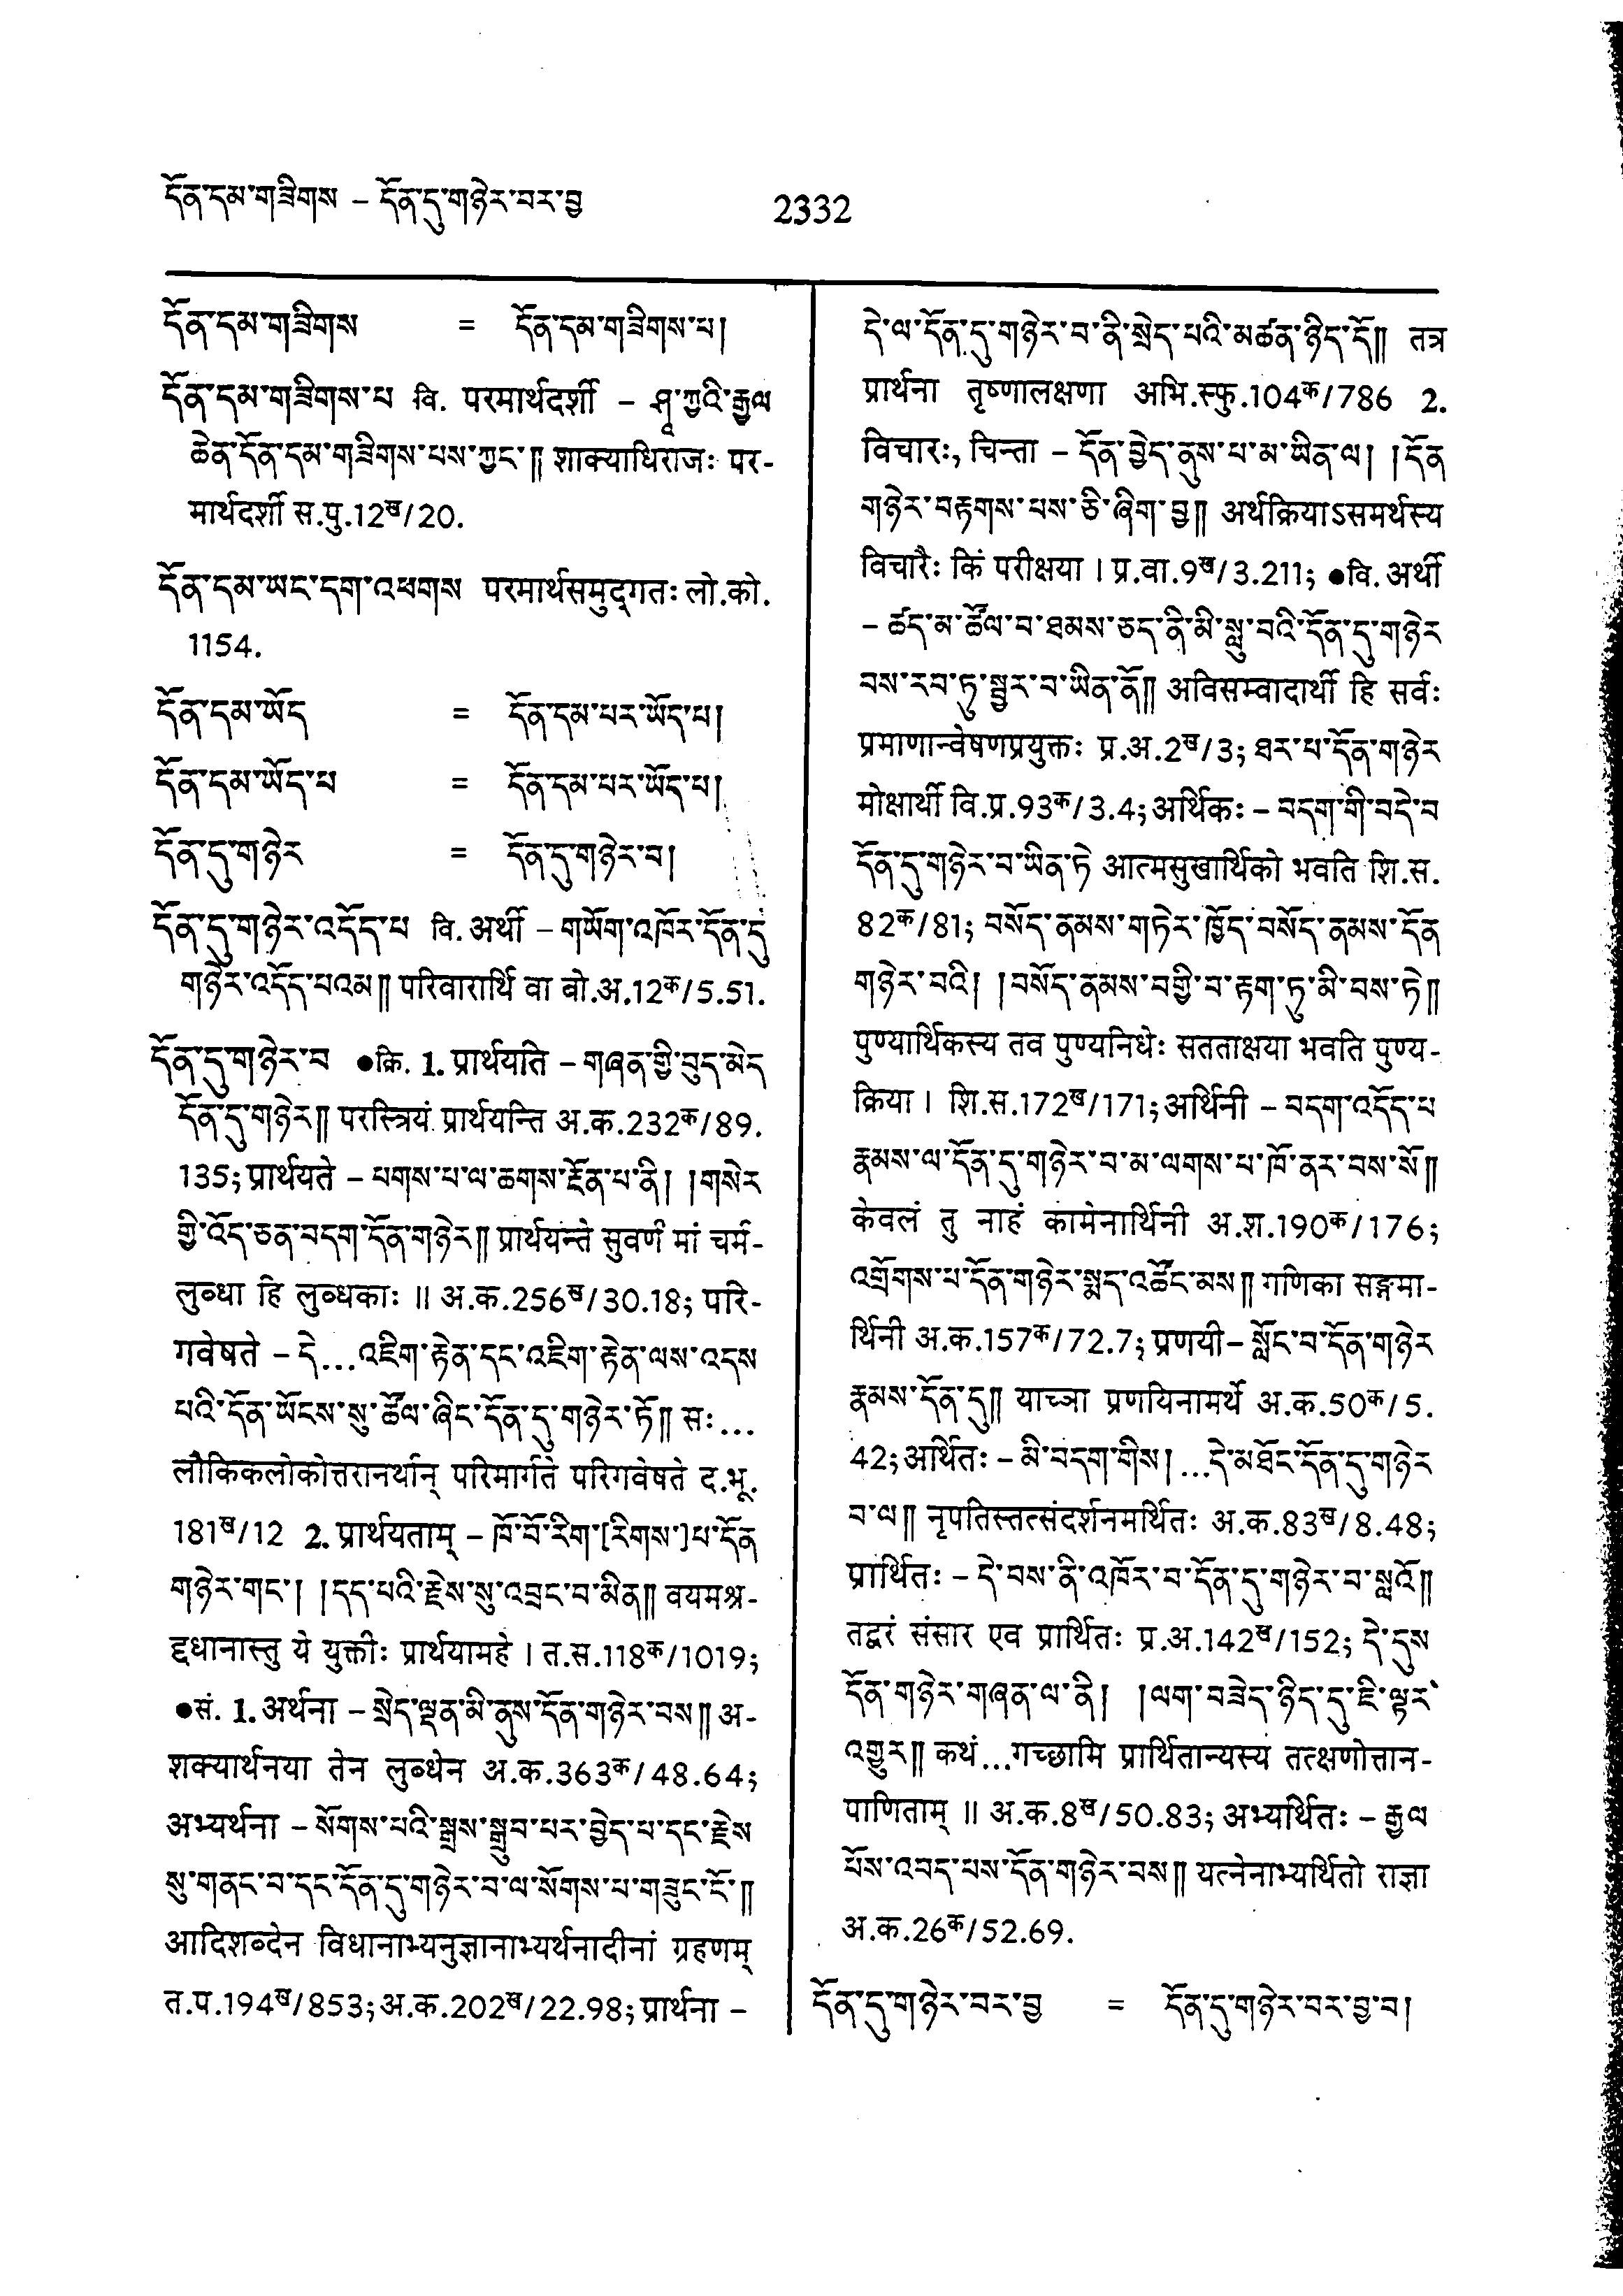 དོན་དམ་གཟིགས – དོན་དུ་གཉེར་བར་བྱ
2332
དོན་དམ་གཟིགས = དོན་དམ་གཟིགས་པ།
དོན་དམ་གཟིགས་པ वि. परमार्थदर्शी – ཤཱཀྱའི་རྒྱལ
ཆེན་དོན་དམ་གཟིགས་པས་ཀྱང་༎ शाक्याधिराजः पर-
मार्थदर्शी स.पु.12ख/20.
དོན་དམ་ཡང་དག་འཕགས परमार्थसमुद्गतः लो.को.
1154.
དོན་དམ་ཡོད = དོན་དམ་པར་ཡོད་པ།
དོན་དམ་ཡོད་པ = དོན་དམ་པར་ཡོད་པ།
དོན་དུ་གཉེར = དོན་དུ་གཉེར་བ།
དོན་དུ་གཉེར་འདོད་པ वि. अर्थी – གཡོག་འཁོར་དོན་དུ
གཉེར་འདོད་པའམ༎ परिवारार्थि वा बो.अ.12क/5.51.
དོན་དུ་གཉེར་བ ●क्रि. 1. प्रार्थयति – གཞན་གྱི་བུད་མེད
དོན་དུ་གཉེར༎ परस्त्रियं प्रार्थयन्ति अ.क.232क/89.
135; प्रार्थयते – པགས་པ་ལ་ཆགས་རྔོན་པ་ནི། །གསེར
གྱི་འོད་ཅན་བདག་དོན་གཉེར༎ प्रार्थयन्ते सुवर्णं मां चर्म-
लुब्धा हि लुब्धकाः ॥ अ.क.256ख/30.18; परि-
गवेषते – དེ...འཇིག་རྟེན་དང་འཇིག་རྟེན་ལས་འདས
པའི་དོན་ཡོངས་སུ་ཚོལ་ཞིང་དོན་དུ་གཉེར་ཏོ༎ सः...
लौकिकलोकोत्तरानर्थान् परिमार्गते परिगवेषते द.भू.
181ख/12 2. प्रार्थयताम् – ཁོ་བོ་རིག་[རིགས་]པ་དོན
གཉེར་གང་། །དད་པའི་རྗེས་སུ་འབྲང་བ་མིན༎ वयमश्र-
द्दधानास्तु ये युक्तीः प्रार्थयामहे । त.स.118क/1019;
●सं. 1. अर्थना – སྲེད་ལྡན་མི་ནུས་དོན་གཉེར་བས༎ अ-
शक्यार्थनया तेन लुब्धेन अ.क.363क/48.64;
अभ्यर्थना – སོགས་པའི་སྒྲས་སྒྲུབ་པར་བྱེད་པ་དང་རྗེས
སུ་གནང་བ་དང་དོན་དུ་གཉེར་བ་ལ་སོགས་པ་གཟུང་ངོ་༎
आदिशब्देन विधानाभ्यनुज्ञानाभ्यर्थनादीनां ग्रहणम्
त.प.194ख/853; अ.क.202ख/22.98; प्रार्थना –
དེ་ལ་དོན་དུ་གཉེར་བ་ནི་སྲེད་པའི་མཚན་ཉིད་དོ༎ तत्र
प्रार्थना तृष्णालक्षणा अभि.स्फु.104क/786 2.
विचारः, चिन्ता – དོན་བྱེད་ནུས་པ་མ་ཡིན་ལ། །དོན
གཉེར་བརྟགས་པས་ཅི་ཞིག་བྱ༎ अर्थक्रियाऽसमर्थस्य
विचारैः किं परीक्षया । प्र.वा.9ख/3.211; ●वि. अर्थी
– ཚད་མ་ཚོལ་བ་ཐམས་ཅད་ནི་མི་སླུ་བའི་དོན་དུ་གཉེར
བས་རབ་ཏུ་སྦྱར་བ་ཡིན་ནོ༎ अविसम्वादार्थी हि सर्वः
प्रमाणान्वेषणप्रयुक्तः प्र.अ.2ख/3; ཐར་པ་དོན་གཉེར
मोक्षार्थी वि.प्र.93क/3.4; अर्थिकः – བདག་གི་བདེ་བ
དོན་དུ་གཉེར་བ་ཡིན་ཏེ आत्मसुखार्थिको भवति शि.स.
82क/81; བསོད་ནམས་གཏེར་ཁྱོད་བསོད་ནམས་དོན
གཉེར་བའི། །བསོད་ནམས་བགྱི་བ་རྟག་ཏུ་མི་བས་ཏེ༎
पुण्यार्थिकस्य तव पुण्यनिधेः सतताक्षया भवति पुण्य-
क्रिया । शि.स.172ख/171; अर्थिनी – བདག་འདོད་པ
རྣམས་ལ་དོན་དུ་གཉེར་བ་མ་ལགས་པ་ཁོ་ནར་བས་སོ༎
केवलं तु नाहं कामेनार्थिनी अ.श.190क/176;
འགྲོགས་པ་དོན་གཉེར་སྨད་འཚོང་མས༎ गणिका सङ्गमा-
र्थिनी अ.क.157क/72.7; प्रणयी – སློང་བ་དོན་གཉེར
རྣམས་དོན་དུ༎ याच्ञा प्रणयिनामर्थे अ.क.50क/5.
42; अर्थितः – མི་བདག་གིས། ...དེ་མཐོང་དོན་དུ་གཉེར
བ་ལ༎ नृपतिस्तत्संदर्शनमर्थितः अ.क.83ख/8.48;
प्रार्थितः – དེ་བས་ནི་འཁོར་བ་དོན་དུ་གཉེར་བ་སླའོ༎
तद्वरं संसार एव प्रार्थितः प्र.अ.142ख/152; དེ་དུས
དོན་གཉེར་གཞན་ལ་ནི། །ལག་བཟེད་ཉིད་དུ་ཇི་ལྟར་
འགྱུར༎ कथं...गच्छामि प्रार्थितान्यस्य तत्क्षणोत्तान-
पाणिताम् ॥ अ.क.8ख/50.83; अभ्यर्थितः – རྒྱལ
པོས་འབད་པས་དོན་གཉེར་བས༎ यत्नेनाभ्यर्थितो राज्ञा
अ.क.26क/52.69.
དོན་དུ་གཉེར་བར་བྱ = དོན་དུ་གཉེར་བར་བྱ་བ།